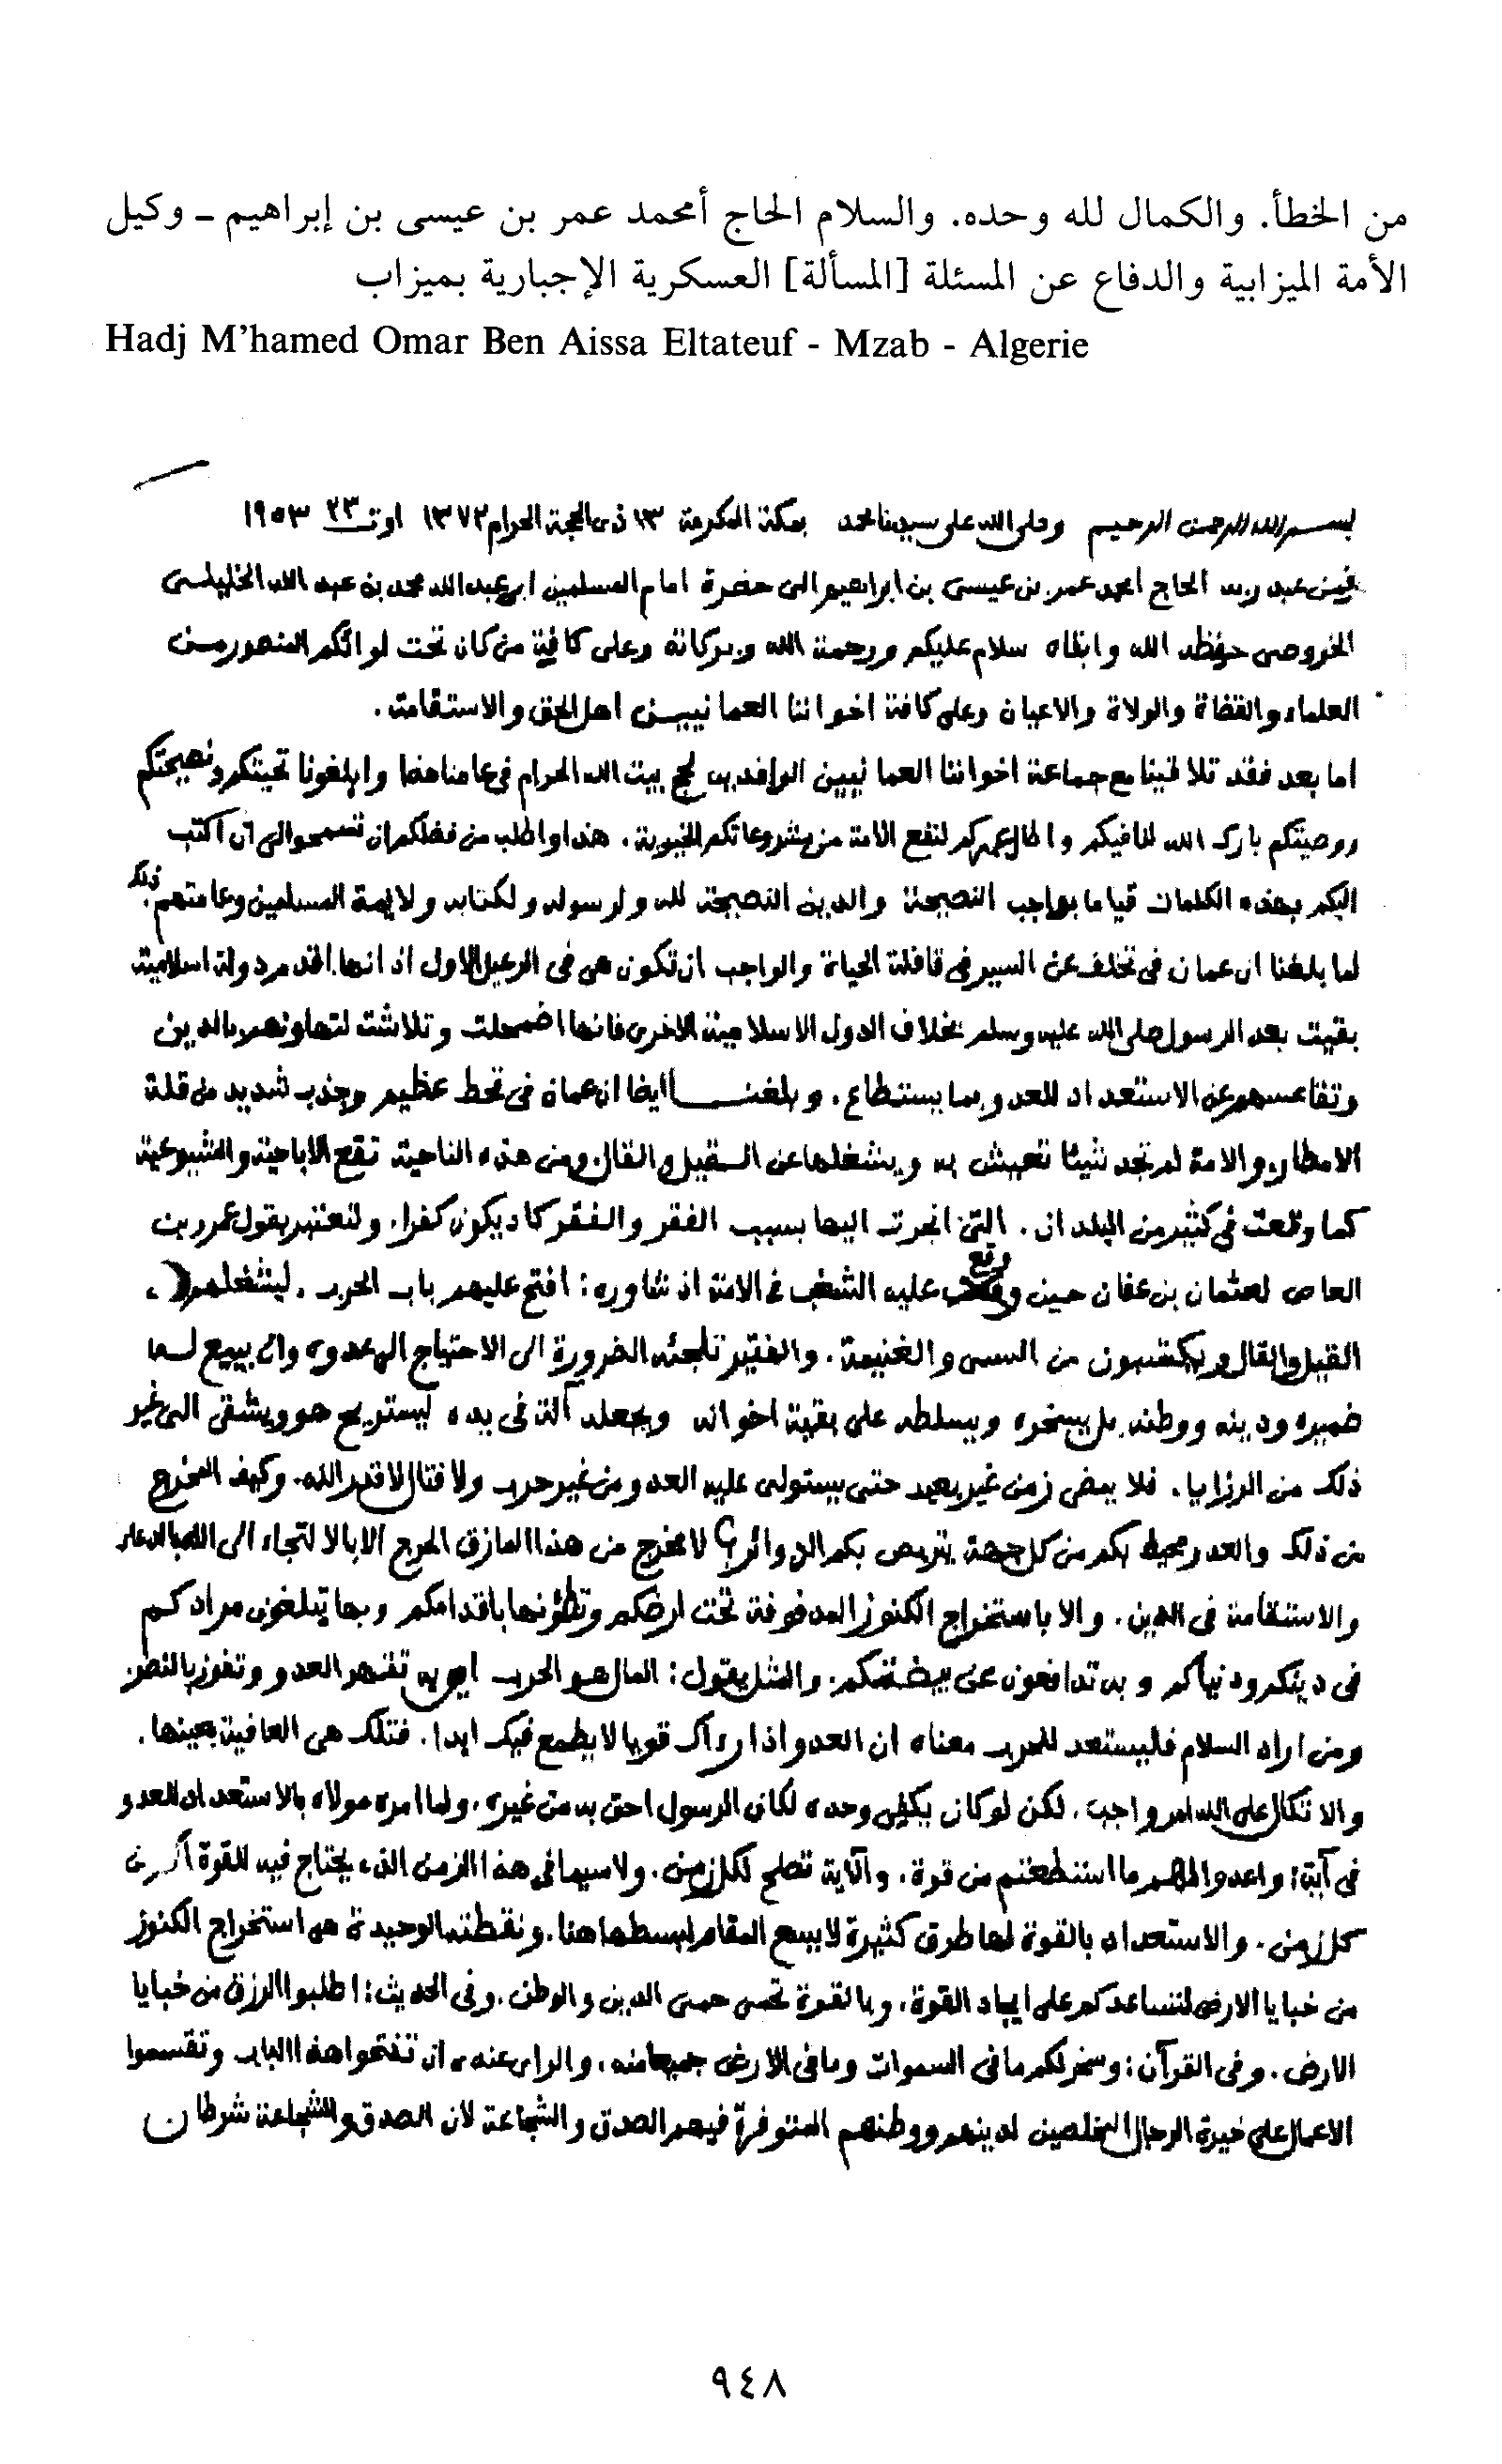 من الخطأ. والكمال لله وحده. والسلام الحاج أمحمد عمر بن عيسى بن إبراهيم - وكيل
الأمة الميزابية والدفاع عن المسئلة [المسألة] العسكرية الإجبارية بميزاب
Hadj M'hamed Omar Ben Aissa Eltateuf - Mzab - Algerie
بسم الله الرحمن الرحيم وصلى الله على سيدنا محمد بمكة المكرمة ١٣ ذى الحجة الحرام ١٣٧٢ اوت ٢٣ ١٩٥٣
فمن عبد ربه الحاج امحمد عمر بن عيسى بن ابراهيم الى حضرة امام المسلمين ابى عبد الله محمد بن عبد الله الخليلى
الخروصى حفظه الله وابقاه سلام عليكم ورحمة الله وبركاته وعلى كافة من كان تحت لوائكم المنصور من
العلماء والقضاة والولاة والاعيان وعلى كافة اخواننا العمانيين اهل الحق والاستقامة.
اما بعد فقد تلاقينا مع جماعة اخواننا العمانيين الوافدين لحج بيت الله الحرام فى عامنا هذا وابلغونا تحيتكم ونصيحتكم
ووصيتكم بارك الله لنا فيكم واطال عمركم لنفع الامة من مشروعاتكم الخيرية. هذا واطلب من فضلكم ان تسمحوا لى ان اكتب
اليكم بهذه الكلمات قياما بواجب النصيحة والدين النصيحة لله ولرسوله ولكتابه ولايمة المسلمين وعامتهم. ذلك
لما بلغنا ان عمان فى تخلف عن السير فى قافلة الحياة والواجب ان تكون هى فى الرعيل الاول اذ انها اقدم دولة اسلامية
بقيت بعد الرسول صلى الله عليه وسلم بخلاف الدول الاسلامية الاخرى فانها اضمحلت وتلاشت لتهاونهم بالدين
وتقاعسهم عن الاستعداد للعدو بما يستطاع. وبلغنا ايضا ان عمان فى قحط عظيم وجذب شديد من قلة
الامطار والامة لم تجد شيئا تعيش به ويشغلها عن القيل والقال ومن هذه الناحية تقع الاباحية والشيوعية
كما وقعت فى كثير من البلدان. التى انجرت اليها بسبب الفقر والفقر كاد يكون كفرا. ولنعتبر بقول عمرو بن
العاص لعثمان بن عفان حين وقع عليه الشغب فى الامة اذ شاوره: افتح عليهم باب الحرب. ليشغلهم
القيل والقال ويكتسبون من السبى والغنيمة. والفقير تلجئه الضرورة الى الاحتياج الى عدوه وان يبيع لــه
ضميره ودينه ووطنه بل يسخره ويسلطه على بقية اخوانه ويجعله آلة فى يده ليستريح هو ويشقى الى غير
ذلك من الرزايا. فلا يمض زمن غير بعيد حتى يستولى عليه العدو من غير حرب ولا قتال لا قدر الله. وكيف المخرج
من ذلك والعدو محيط بكم من كل جهة يتربص بكم الدوائر؟ لا مخرج من هذا المازق الحرج الا بالالتجاء الى الله بالدعاء
والاستقامة فى الدين. والا باستخراج الكنوز المدفونة تحت ارضكم وتطؤنها باقدامكم وبها تبلغون مرادكم
فى دينكم ودنياكم وبه تدافعون عن بيضتكم. والمثل يقول: المال هو الحرب اي به تقهر العدو وتفوز بالنصر
ومن اراد السلام فليستعد للحرب معناه ان العدو اذا رءاك قويا لا يطمع فيك ابدا. فتلك هى العافية بعينها.
والاتكال على الله امر واجب. لكن لو كان يكفى وحده لكان الرسول احق به من غيره. ولما امره مولاه بالاستعداد للعدو
فى آية: واعدوا لهم ما استطعتم من قوة. والآية تصلح لكل زمن. ولاسيما فى هذا الزمن الذى يحتاج فيه للقوة اكثر من
كل زمن. والاستعداد بالقوة لها طرق كثيرة لا يسع المقام لبسطها هنا. ونقطته الوحيدة هو استخراج الكنوز
من خبايا الارض لتساعدكم على ايجاد القوة. وبالقوة تحمى حمى الدين والوطن. وفى الحديث: اطلبوا الرزق من خبايا
الارض. وفى القرآن: وسخر لكم ما فى السموات وما فى الارض جميعا منه. والراى عنده ان تفتحوا هذا الباب وتقسموا
الاعمال على خيرة الرجال المخلصين لدينهم ووطنهم المتوفرة فيهم الصدق والشجاعة لان الصدق والشجاعة شرطان
٩٤٨